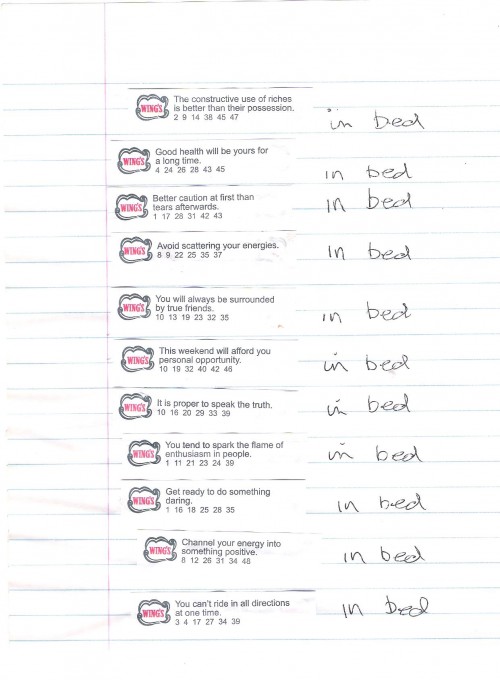 WING'S
The constructive use of riches
is better than their possession.
2 9 14 38 45 47
in bed
WING'S
Good health will be yours for
a long time.
4 24 26 28 43 45
in bed
WING'S
Better caution at first than
tears afterwards.
1 17 28 31 42 43
in bed
WING'S
Avoid scattering your energies.
8 9 22 25 35 37
in bed
WING'S
You will always be surrounded
by true friends.
10 13 19 23 32 35
in bed
WING'S
This weekend will afford you
personal opportunity.
10 19 32 40 42 46
in bed
WING'S
It is proper to speak the truth.
10 16 20 29 33 39
in bed
WING'S
You tend to spark the flame of
enthusiasm in people.
1 11 21 23 24 39
in bed
WING'S
Get ready to do something
daring.
1 16 18 25 28 35
in bed
WING'S
Channel your energy into
something positive.
8 12 26 31 34 48
in bed
WING'S
You can't ride in all directions
at one time.
3 4 17 27 34 39
in bed